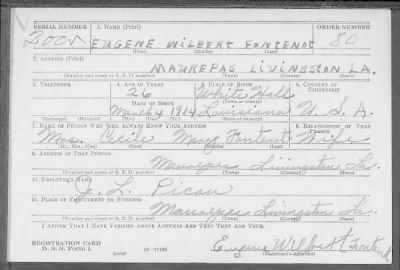 SERIAL NUMBER 1. NAME (Print) ORDER NUMBER
EUGENE WILBERT FONTENOT 80
(First) (Middle) (Last)
2. ADDRESS (Print)
MAUREPAS LIVINGSTON LA.
(Number and street or R. F. D. number) (Town) (County) (State)
3. TELEPHONE 4. AGE IN YEARS 5. PLACE OF BIRTH 6. COUNTRY OF CITIZENSHIP
26 White Hall
DATE OF BIRTH (Town or county)
March 4 1914 Louisiana U. S. A.
(Mo.) (Day) (Yr.) (State or country)
7. NAME OF PERSON WHO WILL ALWAYS KNOW YOUR ADDRESS 8. RELATIONSHIP OF THAT PERSON
Mrs. Cecile Mary Fontenot Wife
(Mr., Mrs., Miss) (First) (Middle) (Last)
9. ADDRESS OF THAT PERSON
Maurepas Livingston La.
(Number and street or R. F. D. number) (Town) (County) (State)
10. EMPLOYER'S NAME
J. L. Picou
11. PLACE OF EMPLOYMENT OR BUSINESS
Maurepas Livingston La.
(Number and street or R. F. D. number) (Town) (County) (State)
I AFFIRM THAT I HAVE VERIFIED ABOVE ANSWERS AND THAT THEY ARE TRUE.
REGISTRATION CARD
D. S. S. Form 1 (over) Eugene Wilbert Fontenot
(Registrant's signature)